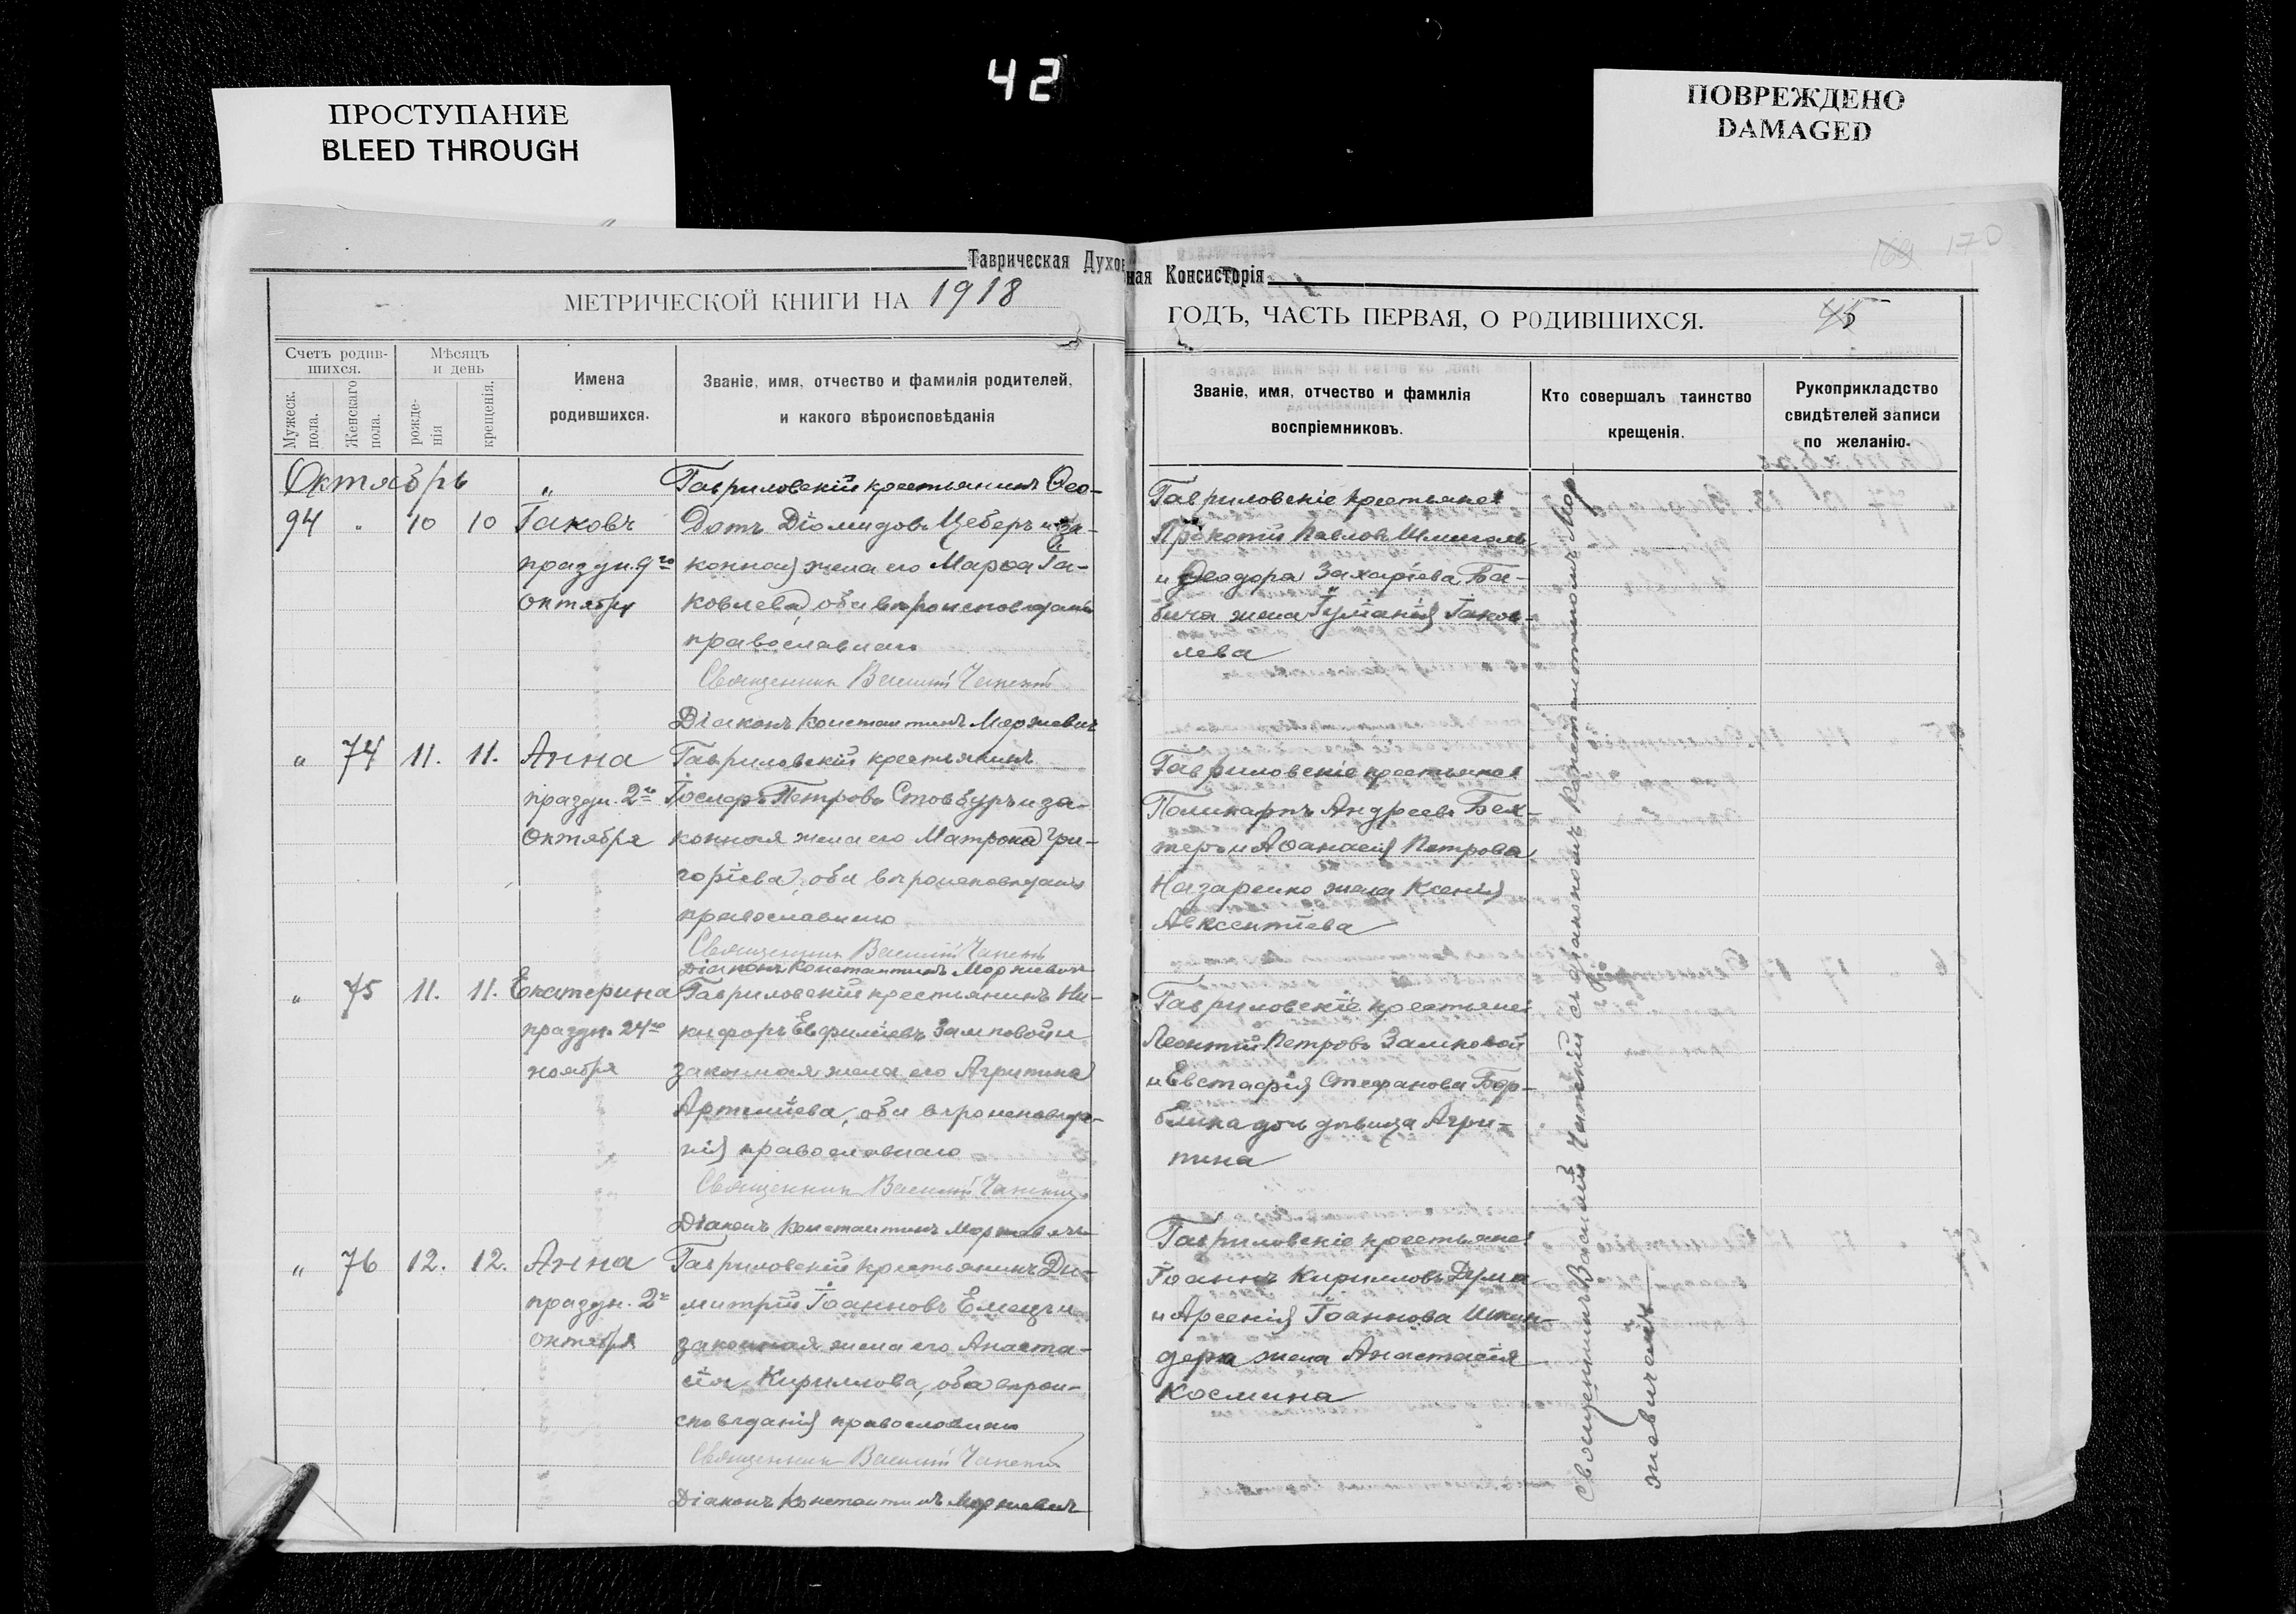 42
ПРОСТУПАНИЕ
BLEED THROUGH
ПОВРЕЖДЕНО
DAMAGED
Таврическая Духовная Консисторія
169 170
МЕТРИЧЕСКОЙ КНИГИ НА 1918
ГОДЪ, ЧАСТЬ ПЕРВАЯ, О РОДИВШИХСЯ.
45
Счетъ родив-
шихся.
Мужеск.
пола.
Женскаго
пола.
Мѣсяцъ
и день
рожде-
нія
крещенія.
Имена
родившихся.
Званіе, имя, отчество и фамилія родителей,
и какого вѣроисповѣданія
Званіе, имя, отчество и фамилія
воспріемниковъ.
Кто совершалъ таинство
крещенія.
Рукоприкладство
свидѣтелей записи
по желанію.
Октябрь
94 " 10 10 Іаковъ
праздн. 9го
октября
Гавриловскій крестьянинъ Ѳео-
дотъ Діомидовъ Цеберъ и за-
конная жена его Марѳа Іа-
ковлева, оба вѣроисповѣданія
православнаго
Священникъ Василій
Діаконъ Константинъ Моржевичъ
Гавриловскіе крестьяне
Прокопій Павловъ
и Ѳеодора Захаріева Ба-
бича жена Іуліанія Іаков-
лева
" 74 11. 11. Анна
праздн. 2го
октября
Гавриловскій крестьянинъ
Іосифъ Петровъ Стовбуръ и за-
конная жена его Матрона Гри-
горіева, оба вѣроисповѣданія
православнаго
Священникъ Василій
Діаконъ Константинъ Моржевичъ
Гавриловскіе крестьяне
Поликарпъ Андреевъ Бех-
теръ и Аѳанасія Петрова
Назаренко жена Ксенія
Авксентіева
" 75 11. 11. Екатерина
праздн. 24го
ноября
Гавриловскій крестьянинъ Ни-
кифоръ Евфиміевъ Замковой и
законная жена его Агрипина
Артеміева, оба вѣроисповѣда-
нія православнаго
Священникъ Василій
Діаконъ Константинъ Моржевичъ
Гавриловскіе крестьяне
Леонтій Петровъ Замковой
и Евстафія Стефанова
дочь дѣвица Агри-
пина
" 76 12. 12. Анна
праздн. 2го
октября
Гавриловскій крестьянинъ Ди-
митрій Іоанновъ Емецъ и
законная жена его Анаста-
сія Кириллова, оба вѣрои-
сповѣданія православнаго
Священникъ Василій
Діаконъ Константинъ Моржевичъ
Гавриловскіе крестьяне
Іоаннъ Кирилловъ Дума
и Арсенія Іоаннова Шкин-
дера жена Анастасія
Космина
Священникъ Василій съ діакономъ Константиномъ Мор-
жевичемъ